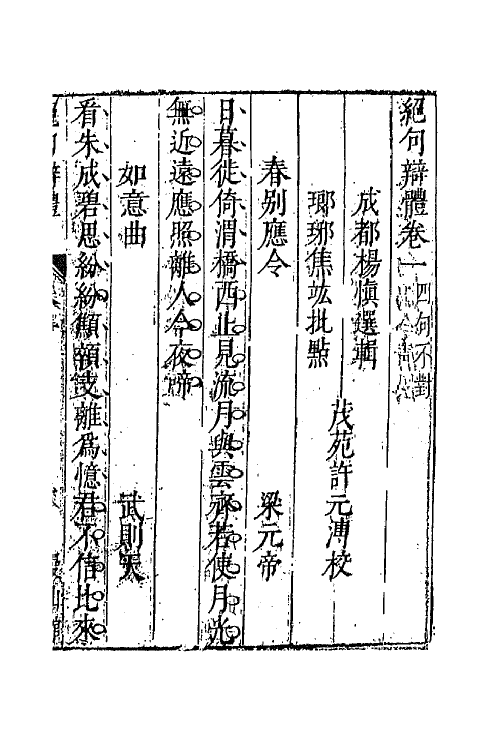 絕句辯體卷一 四句不對
成都楊慎選輯
瑯琊焦竑批點
茂苑許元溥校
春别應令 梁元帝
日暮徙倚渭橋西止見流月與雲齊若使月光
無近遠應照離人今夜啼
如意曲 武則天
看朱成碧思紛紛顦顇支離爲憶君不信比來
絕句辯體